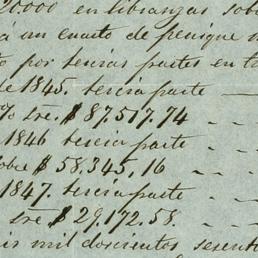 20000 en libranzas sob
á un cuarto de penique
to por tercias partes en t
de 1845. tercia parte
% sre. $ 87.517.74
1846 tercia parte
sobre $ 58.345,16
1847. tercia parte
sre $ 29,172.58.
is mil doscientos sesent